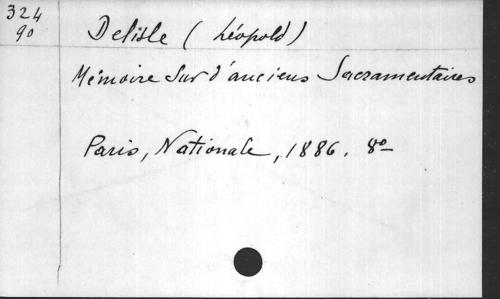 324
90
Delisle (Léopold)
Mémoire sur d'anciens Sacramentaires
Paris, Nationale, 1886. 8o